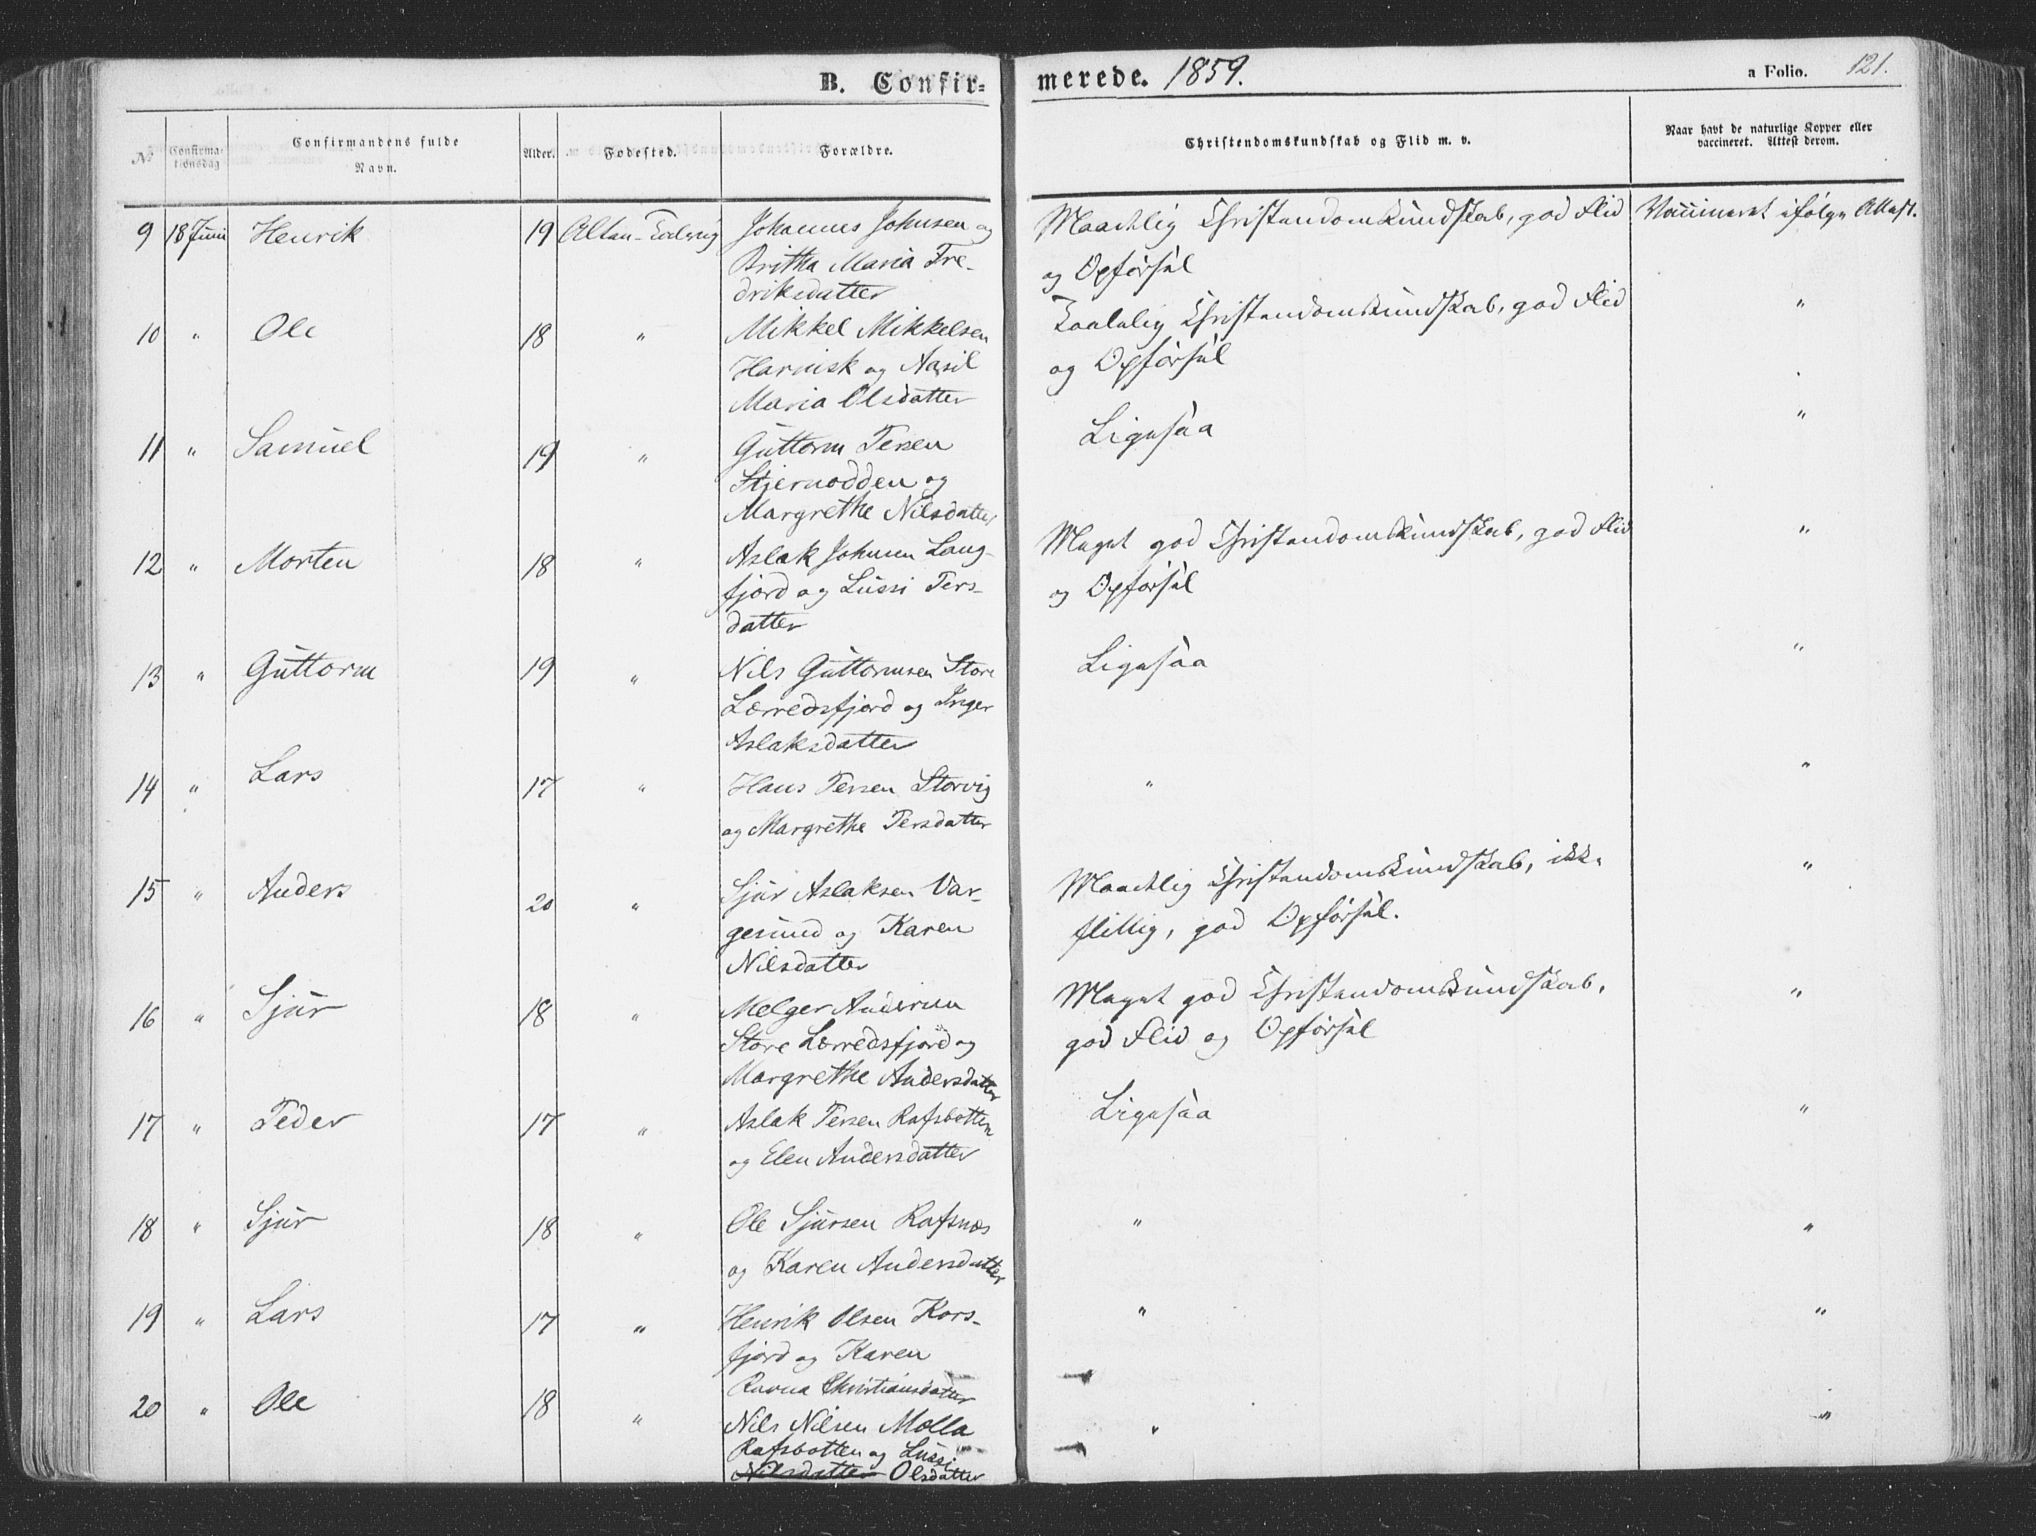 B. Confir=
merede. 1859.
a Folio. 121.
No
Confirma-
tionsdag
Confirmandens fulde
Navn.
Alder.
Fødested.
Forældre.
Christendomskundskab og Flid m. v.
Naar havt de naturlige Kopper eller
vaccineret. Attest derom.
9 18 Juni Henrik 19 Alten-Talvig Johannes Johnsen og Maadelig Christendomskundskab, god Flid Vaccineret ifølge Attest.
Britha Maria Fre- og Opførsel
driksdatter
10 " Ole 18 " Mikkel Mikkelsen Taalelig Christendomskundskab, god Flid "
Harnisk og og Opførsel
Maria Olsdatter
11 " Samuel 19 " Guttorm Persen Ligesaa "
Stjernodden og
Margrethe Nilsdatter
12 " Morten 18 " Aslak Johnsen Lang- Meget god Christendomskundskab, god Flid "
fjord og Lussi Pers- og Opførsel
datter
13 " Guttorm 19 " Nils Guttormsen Store Ligesaa "
Lerredsfjord og Inger
Aslaksdatter
14 " Lars 17 " Hans Persen Storvig " "
og Margrethe Persdatter
15 " Anders 20 " Sjur Aslaksen Var- Maadelig Christendomskundskab, ikke "
gesund og Karen flittig, god Opførsel.
Nilsdatter
16 " Sjur 18 " Melger Andersen Meget god Christendomskundskab, "
Store Lerredsfjord og god Flid og Opførsel
Margrethe Andersdatter
17 " Peder 17 " Aslak Persen Rafsbotten Ligesaa "
og Elen Andersdatter
18 " Sjur 18 " Ole Sjursen Rafsnes " "
og Karen Andersdatter
19 " Lars 17 " Henrik Olsen Kors- " "
fjord og Karen
Ravna Christiansdatter
20 " Ole 18 " Nils Nilsen Molla " "
Rafsbotten og Lussi
Nilsdatter Olsdatter